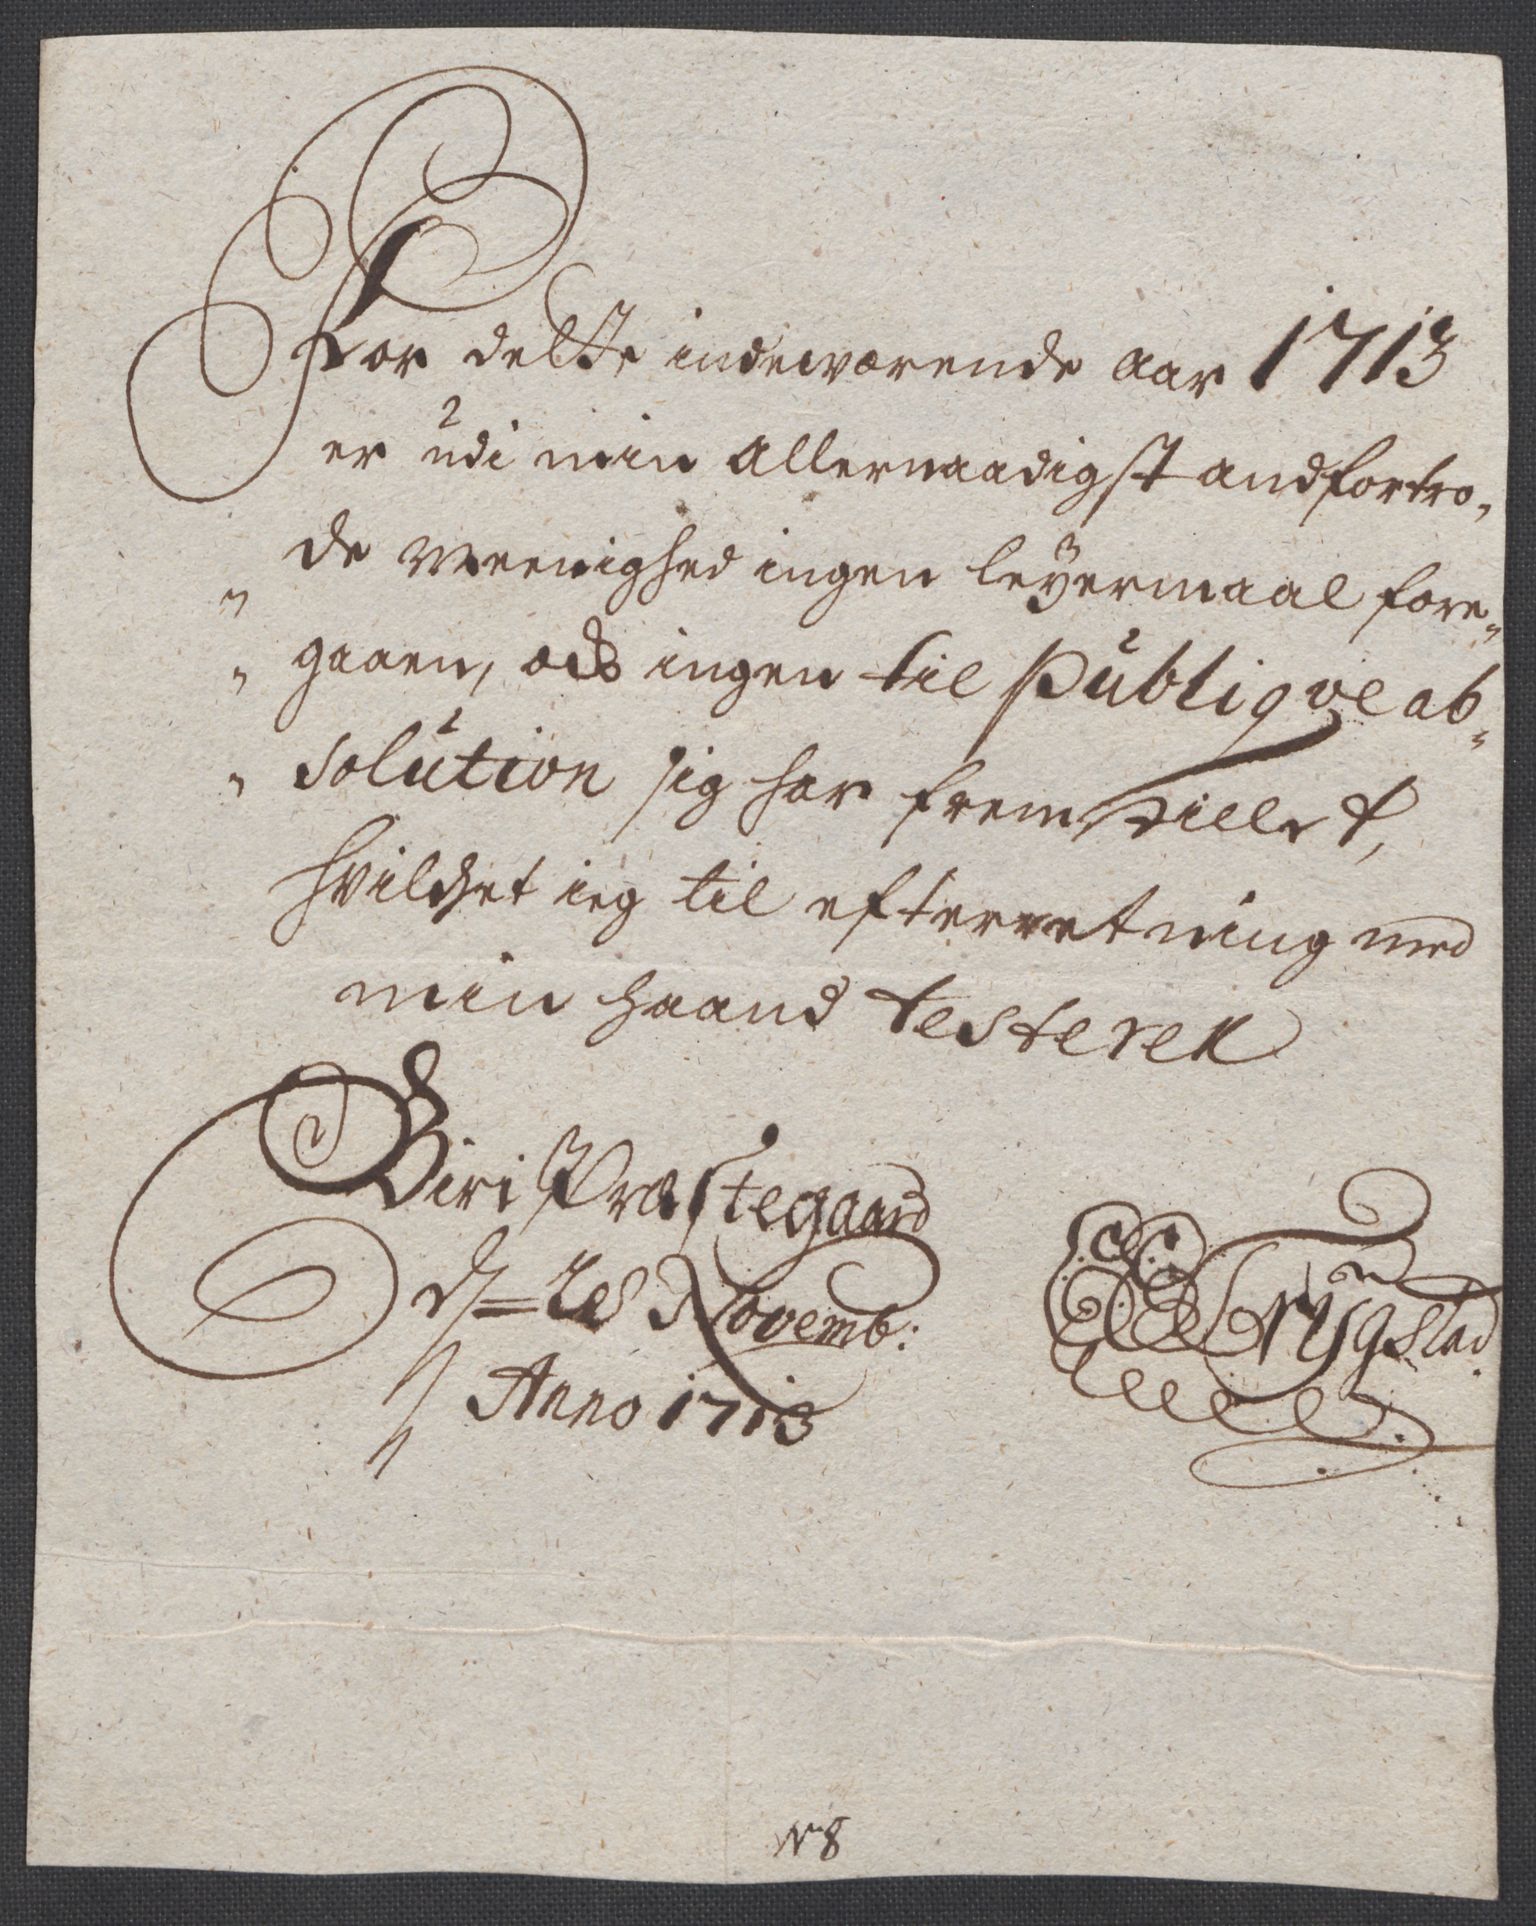 For dette indeværende aar 1713
er udi min allernaadigst andfortro,,
,, de meenighed ingen leyermaal fore,,
,, gaaen, och ingen til Publiqve ab,,
,, solution sig har fremstillet,
hvilchet ieg til efterretning med
min haand testerer
Biri Præstegaard
d Novemb:
Anno 1713
Trÿgstad
No 8